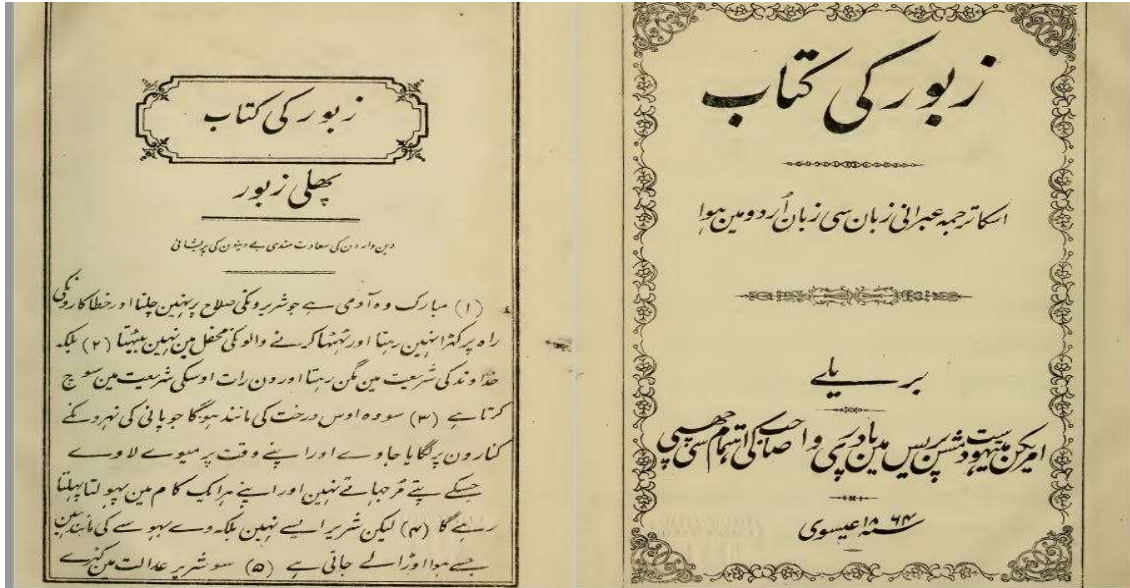 زبور کی کتاب
اسکا ترجمہ عبرانی زبان سی زبان اُردو مین ہوا
بریلے
امریکن میتہودست مشن پریس مین پادری وا صاحب کی اہتمام سی چھپی
سنہ ۱۸۶۴ عیسوی
زبور کی کتاب
پھلی زبور
دین دارون کی سعادت مندی بے دینون کی پریشانی
(۱) مبارک وہ آدمی ہے جو شریرونکی صلاح پر نہین چلتا اور خطا کارونکی
راہ پر کھڑا نہین رہتا اور ٹھٹھا کرنے والونکی محفل مین نہین بیٹھتا (۲) بلکہ
خداوند کی شریعت مین مگن رہتا اور دن رات اوسکی شریعت مین سوچ
کرتا ہے (۳) سو وہ اوس درخت کی مانند ہوگا جو پانی کی نہرونکے
کنارون پر لگایا جاوے اور اپنے وقت پر میوے لاوے
جسکے پتے مُرجہاتے نہین اور اپنے ہر ایک کام مین پہولتا پہلتا
رہے گا (۴) لیکن شریر ایسے نہین بلکہ وے بہوسے کی مانند ہین
جسے ہوا اوڑا لے جاتی ہے (۵) سو شریر عدالت مین کہڑے